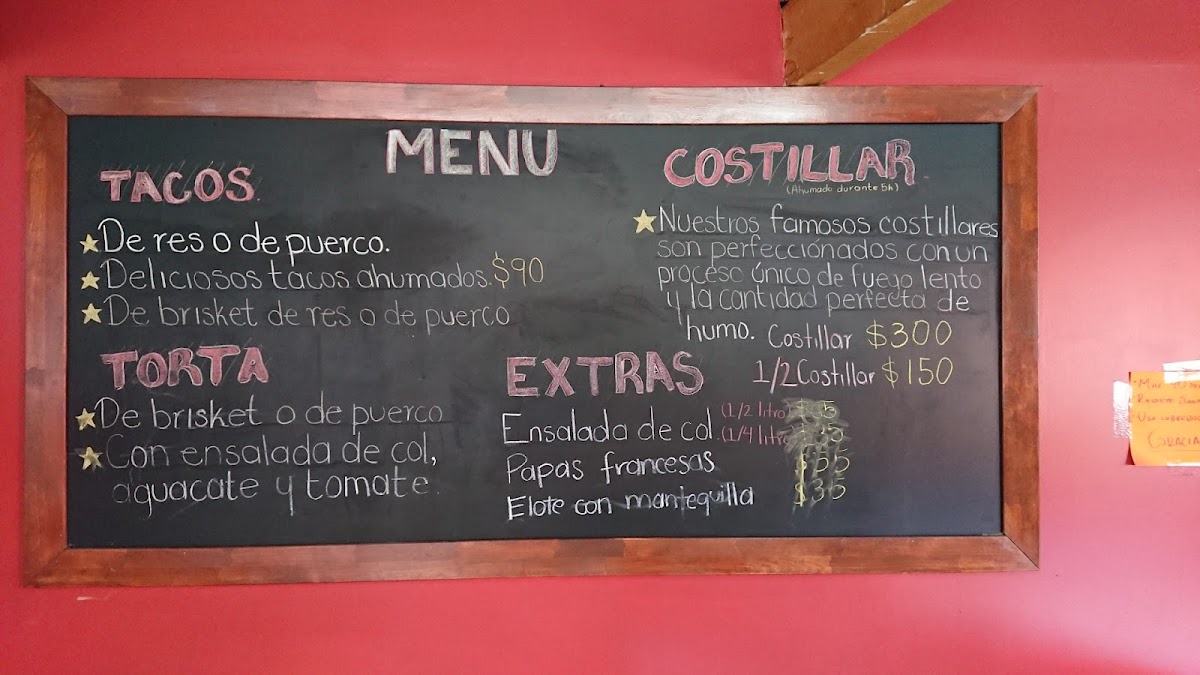 MENU
TACOS
De res o de puerco.
Deliciosos tacos ahumados. $90
De brisket de res o de puerco
TORTA
De brisket o de puerco
Con ensalada de col,
aguacate y tomate.
COSTILLAR
(Ahumado durante 5h)
Nuestros famosos costillares
son perfecciónados con un
proceso único de fuego lento
y la cantidad perfecta de
humo.
Costillar $300
1/2 Costillar $150
EXTRAS
Ensalada de col (1/2 litro)
(1/4 litro)
Papas francesas
Elote con mantequilla $35